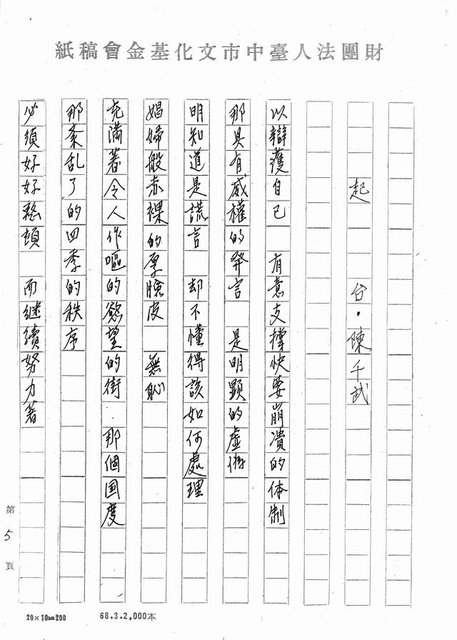 財團法人臺中市文化基金會稿紙
起
台・陳千武
以辯護自己 有意支撐快要崩潰的体制
那具有威權的發言 是明顯的虛術
明知道是謊言 却不懂得該如何處理
娼婦般赤裸的厚臉皮 無恥
充滿著令人作嘔的慾望的街 那個国度
那紊乱了的四季的秩序
必須好好整頓 而継續努力著
第5頁
20×10=200
68.3.2,000本